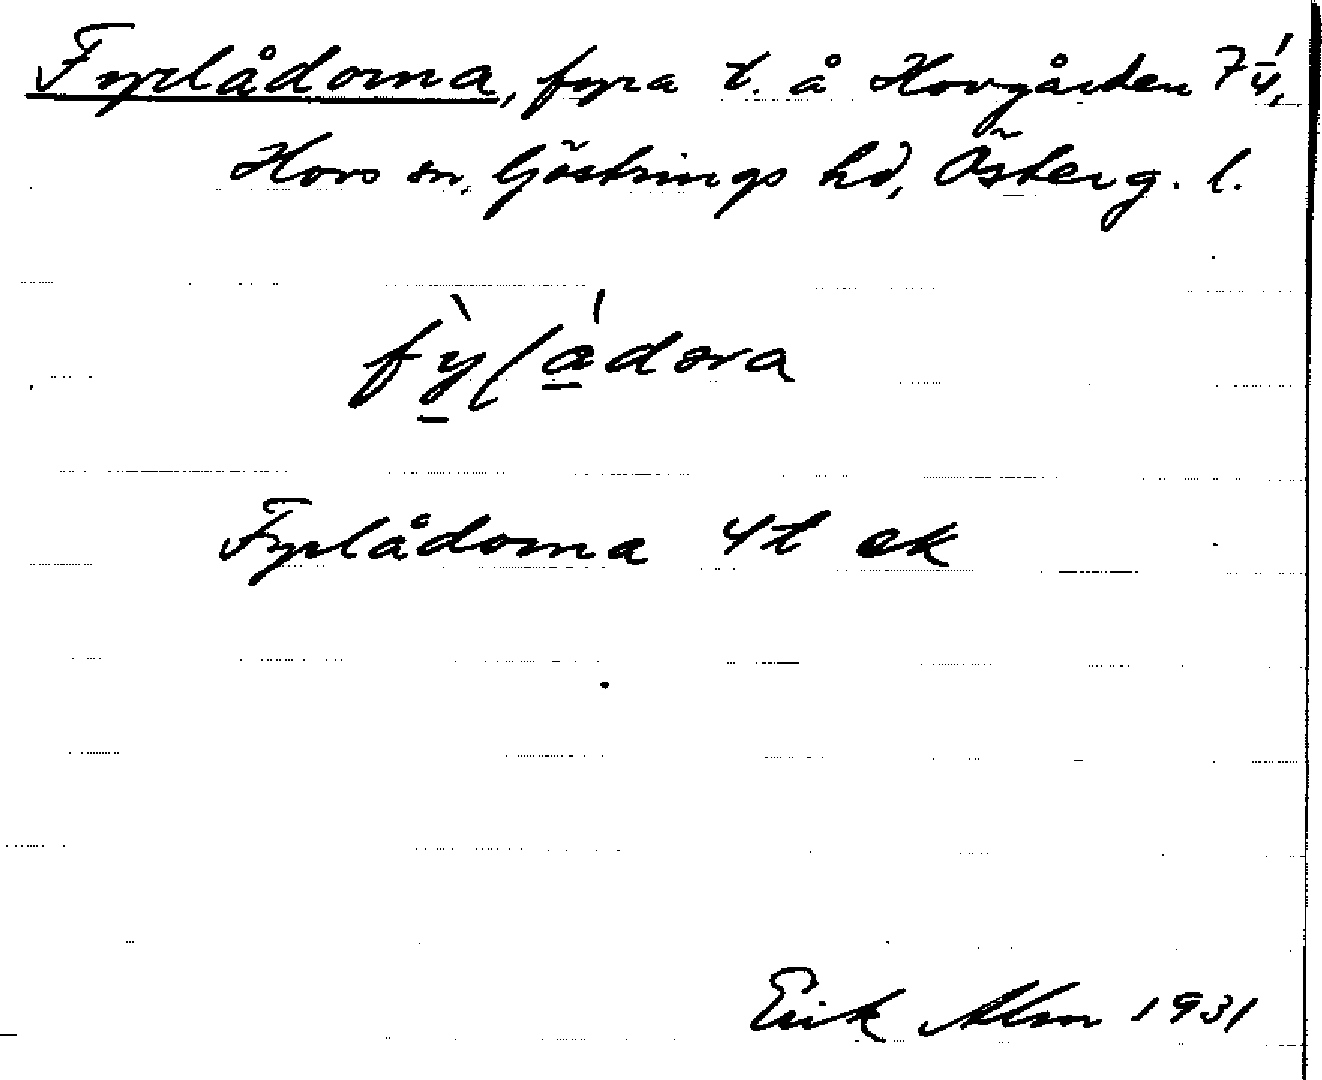 Fyrlådorna, fyra t. å Hovgården 7 1/4,
Hovs sn, Göstrings hd, Österg. l.
fỳládora
Fyrlådorna 4 t ek
Erik Alm 1931